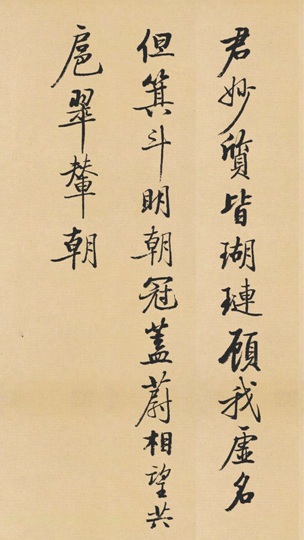 君妙質皆瑚璉顧我虛名
但箕斗明朝冠蓋蔚相望共
扈翠輦朝